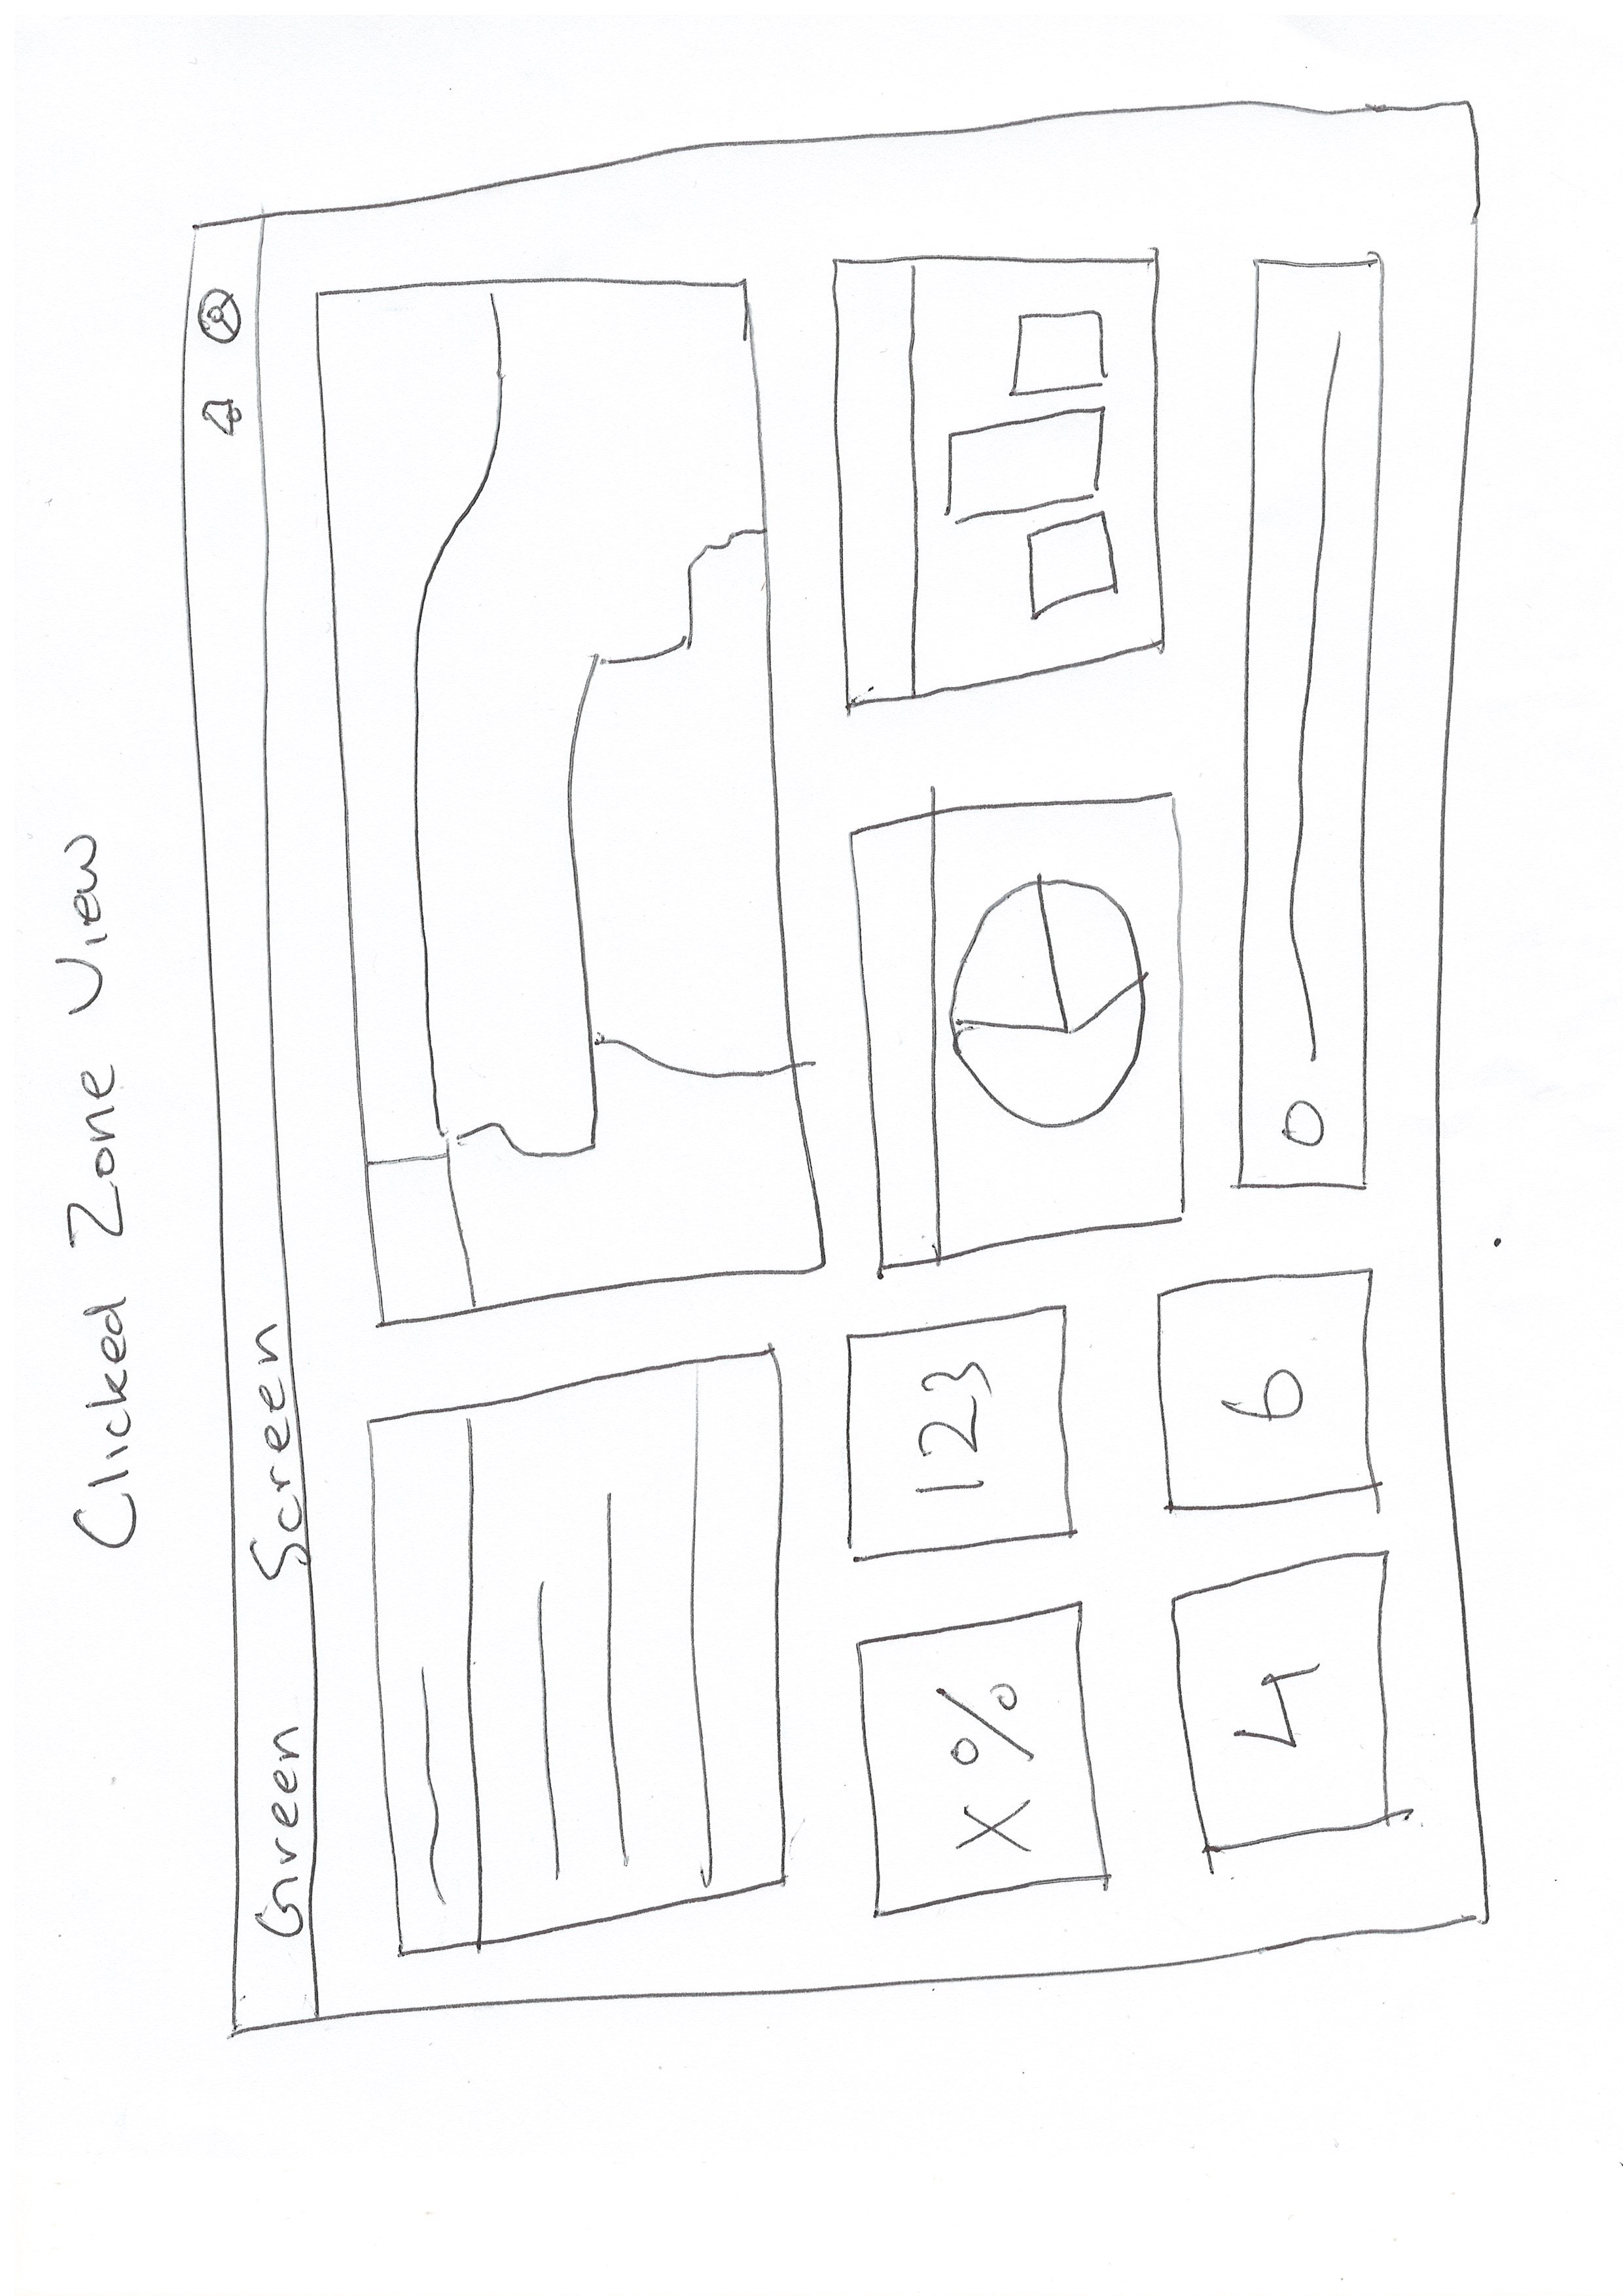 Clicked Zone View
Green Screen
X %
123
4
6